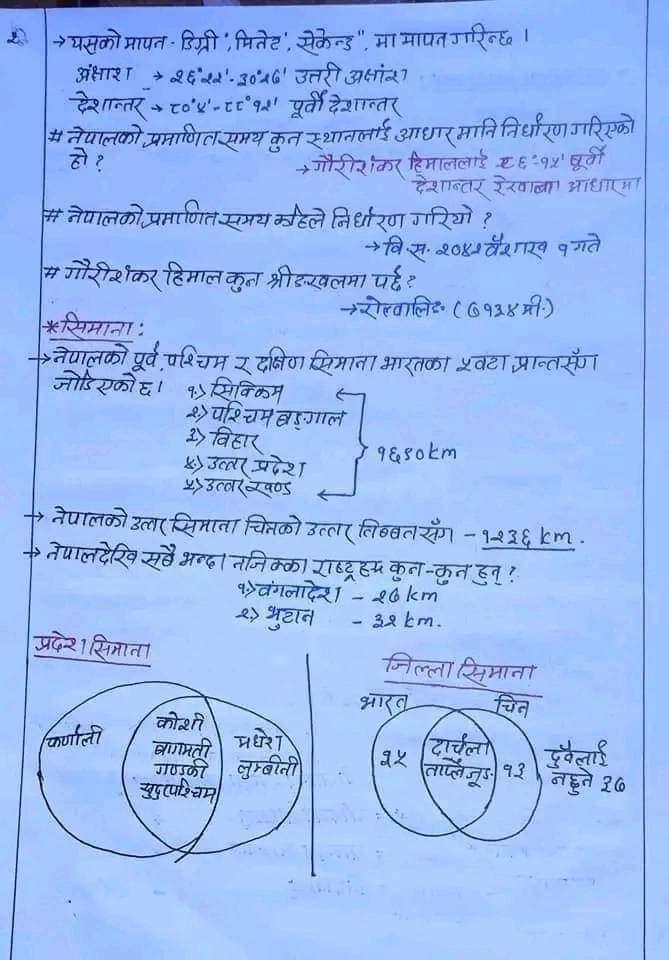 २
→ यसको मापन - डिग्री°, मिनेट', सेकेन्ड", मा मापन गरिन्छ ।
अंक्षाश → २६°२२'-३०°२७' उत्तरी अक्षांश
देशान्तर → ८०°४'-८८°१२' पूर्वी देशान्तर
# नेपालको प्रमाणित समय कुन स्थानलाई आधार मानि निर्धारण गरिएको
हो ?
→ गौरीशंकर हिमाललाई ८६°१५' पूर्वी
देशान्तर रेखाका आधारमा
# नेपालको प्रमाणित समय कहिले निर्धारण गरियो ?
→ वि.स. २०४२ वैशाख १ गते
# गौरीशंकर हिमाल कुन श्रीङखलमा पर्छ ?
→ रोल्वालिङ (७१३४ मी.)
* सिमाना :
→ नेपालको पूर्व, पश्चिम र दक्षिण सिमाना भारतका ५ वटा प्रान्तसँग
जोडिएको छ।
१> सिक्किम
२> पश्चिम बङ्गाल
३> विहार
४> उत्तर प्रदेश
५> उत्तरखण्ड
१६९० km
→ नेपालको उत्तर सिमाना चिनको उत्तर तिब्बत सँग - १२३६ km.
→ नेपालदेखि सबै भन्दा नजिकका राष्ट्रहरू कुन-कुन हुन् ?
१> वंगलादेश - २७ km
२> भुटान - ३२ km.
प्रदेश सिमाना
कर्णाली
कोशी
बागमती
गण्डकी
सुदुरपश्चिम
मधेश
लुम्बीनी
जिल्ला सिमाना
भारत
चिन
२५
दार्चुला
ताप्लेजूङ
१३
दुवैलाई
नछुने ३७